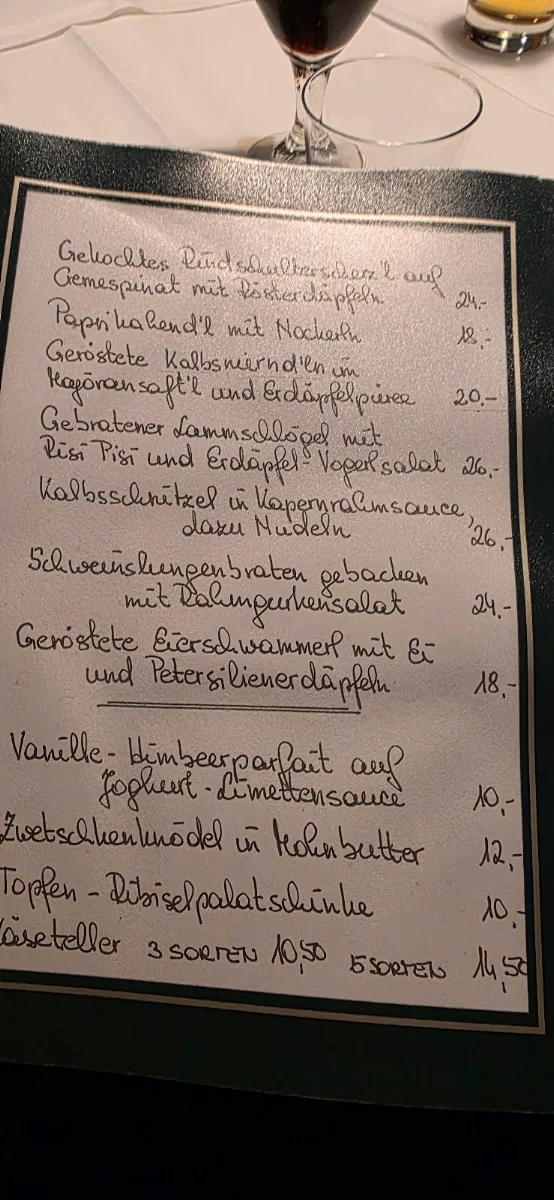 Gekochtes Rindschulterscherz'l auf
Cremespinat mit Rösterdäpfeln 24.-
Paprikahend'l mit Nockerln 18,-
Geröstete Kalbsniernd'ln im
Majoransaft'l und Erdäpfelpüree 20.-
Gebratener Lammschlögel mit
Risi Pisi und Erdäpfel-Vogerlsalat 26,-
Kalbsschnitzel in Kapernrahmsauce,
dazu Nudeln 26,-
Schweinslungenbraten gebacken
mit Rahmgurkensalat 24.-
Geröstete Eierschwammerl mit Ei
und Petersilienerdäpfeln 18,-
Vanille-Himbeerparfait auf
Joghurt-Limettensauce 10,-
Zwetschkenknödel in Mohnbutter 12,-
Topfen-Ribiselpalatschinke 10,-
Käseteller 3 SORTEN 10,50 5 SORTEN 14,50